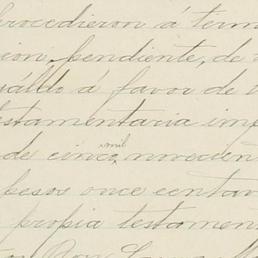 procedieron á term
cion, pendiente, de
á favor de
testamentaria imp
de cinco mil novecien
pesos once centav
propia testamen